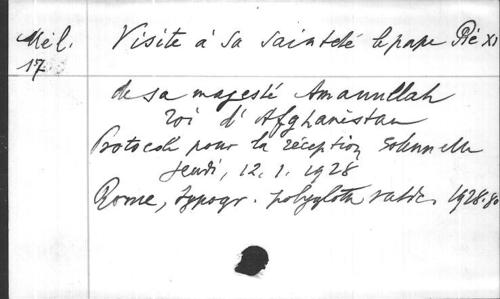 Mél. Visite à Sa Sainteté le pape Pie XI
17.
de sa majesté Amanullah
roi d'Afghanistan
Protocole pour la réception solennelle
jeudi, 12.1.1928
Rome, typogr. polyglotte vatic. 1928. 8o